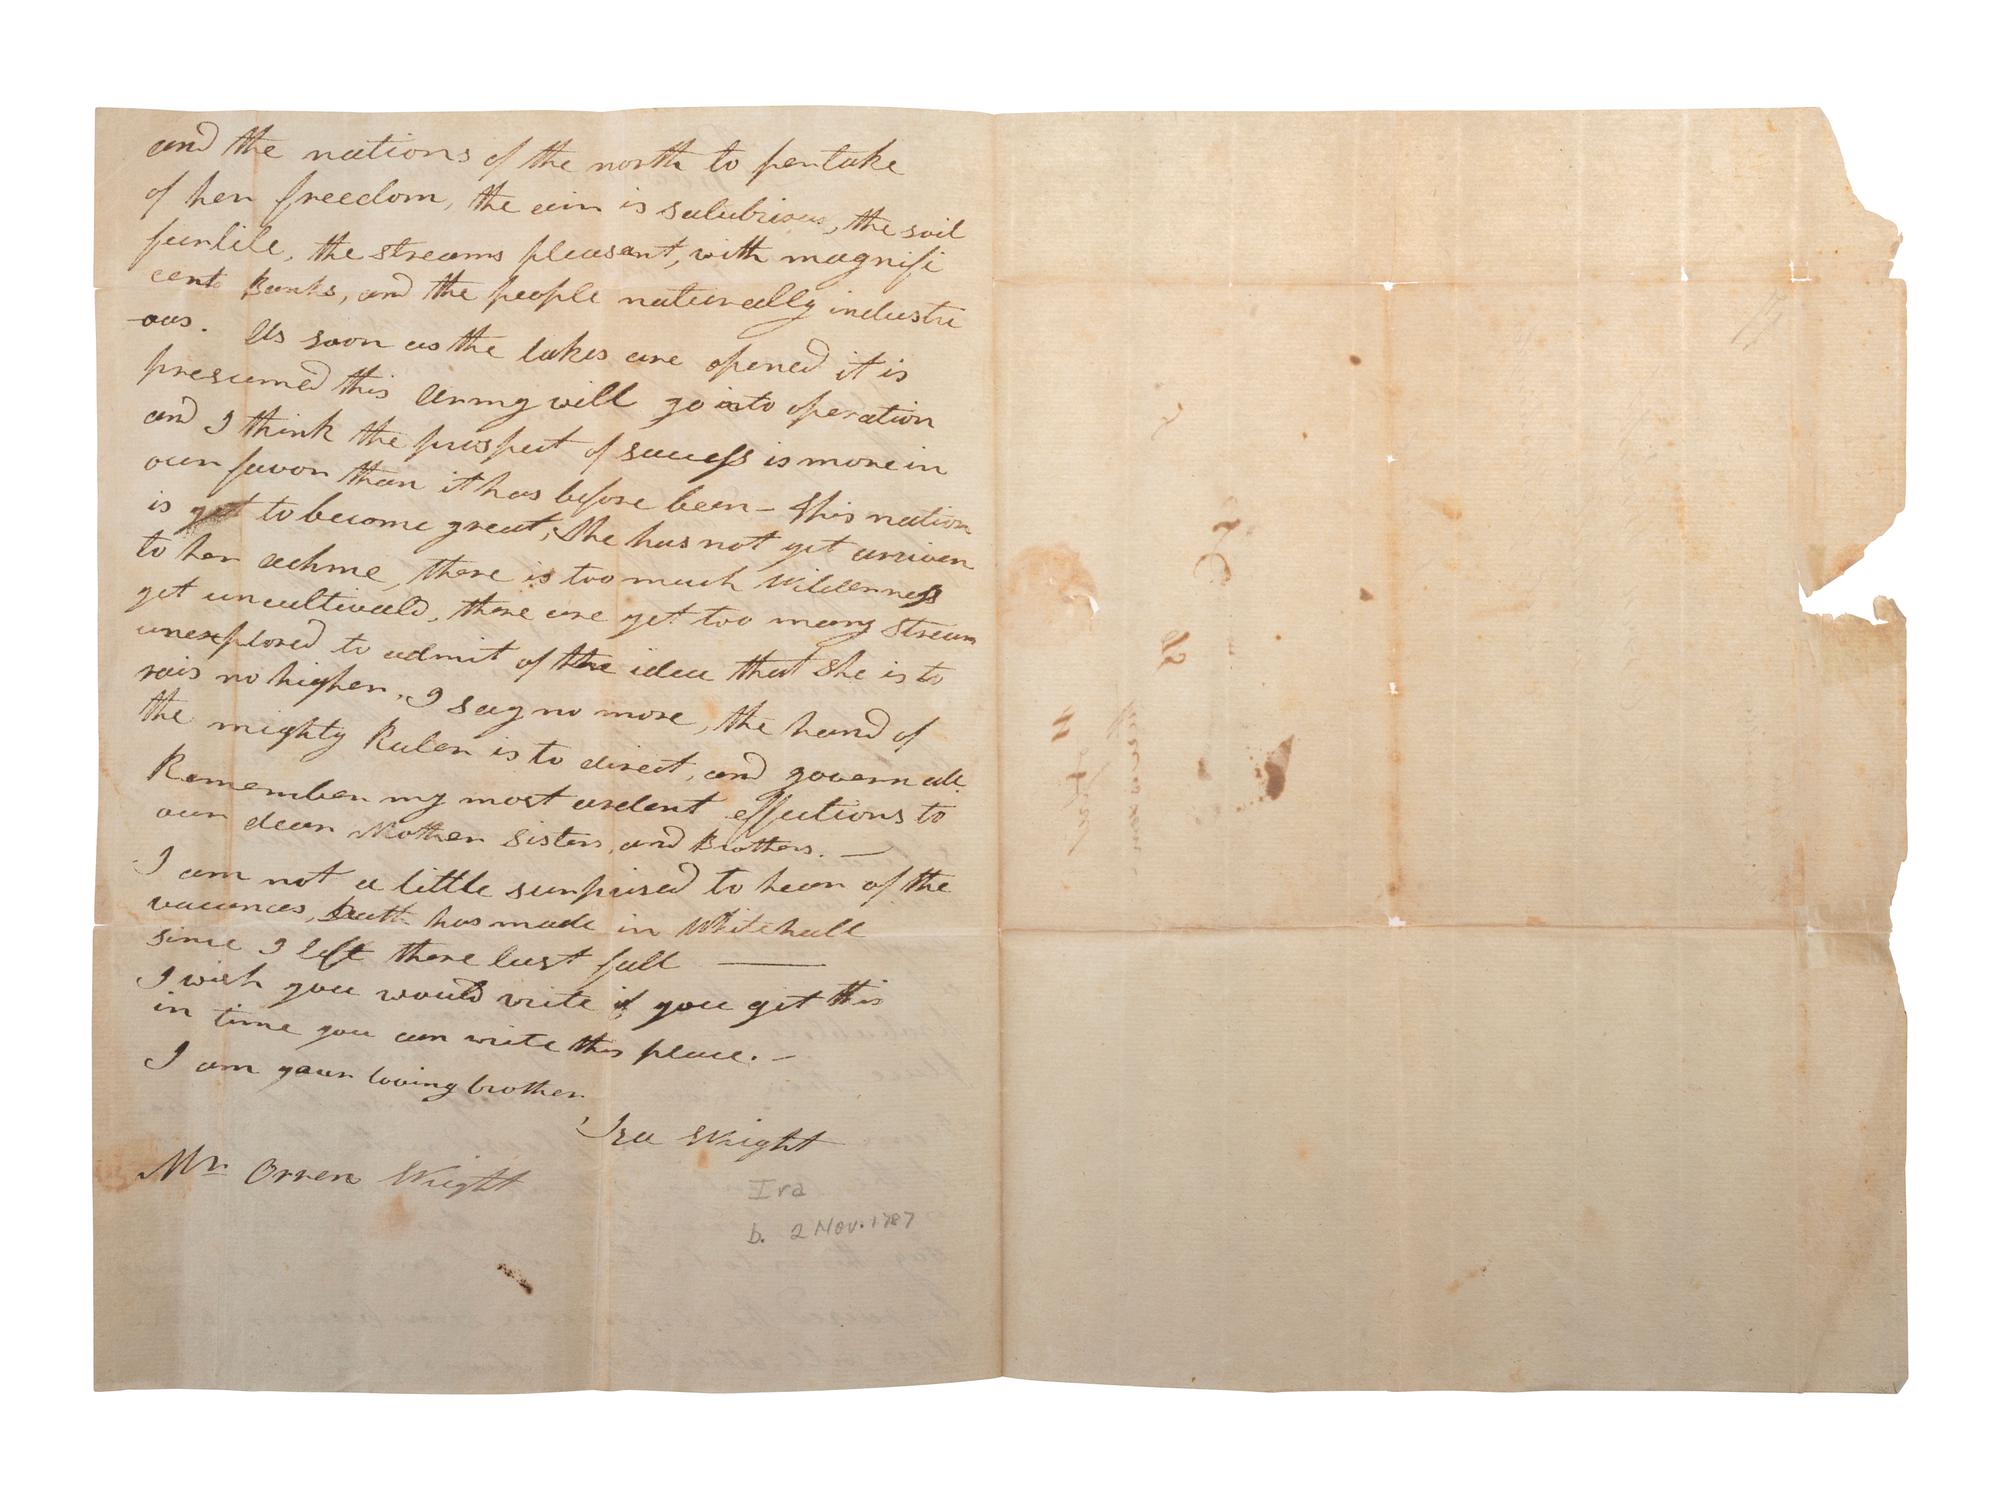 and the nations of the north to pertake
of her freedom, the air is salubrious, the soil
furtile, the streams pleasant, with magnifi
cent Banks, and the people naturally industri
-ous. As soon as the lakes are opened it is
presumed this Army will go into operation
and I think the prospect of success is more in
our favor than it has before been - This nation
is yet to become great, She has not yet arriven
to her achme, there is too much Wilderness
yet uncultivald, there are yet too many Stream
unexplored to admit of the idea that She is to
rais no higher, I say no more, the hand of
the mighty Ruler is to direct, and govern all.
Remember my most ardent affections to
our dear Mother Sisters, and Brothers. —
I am not a little surprised to hear of the
vacances, Death has made in Whitehall
since I left there last fall —
I wish you would write if you git this
in time you can write this place. -
I am your loving brother
Ira Wright
Mr Orren Wright
Ira
b. 2 Nov. 1787